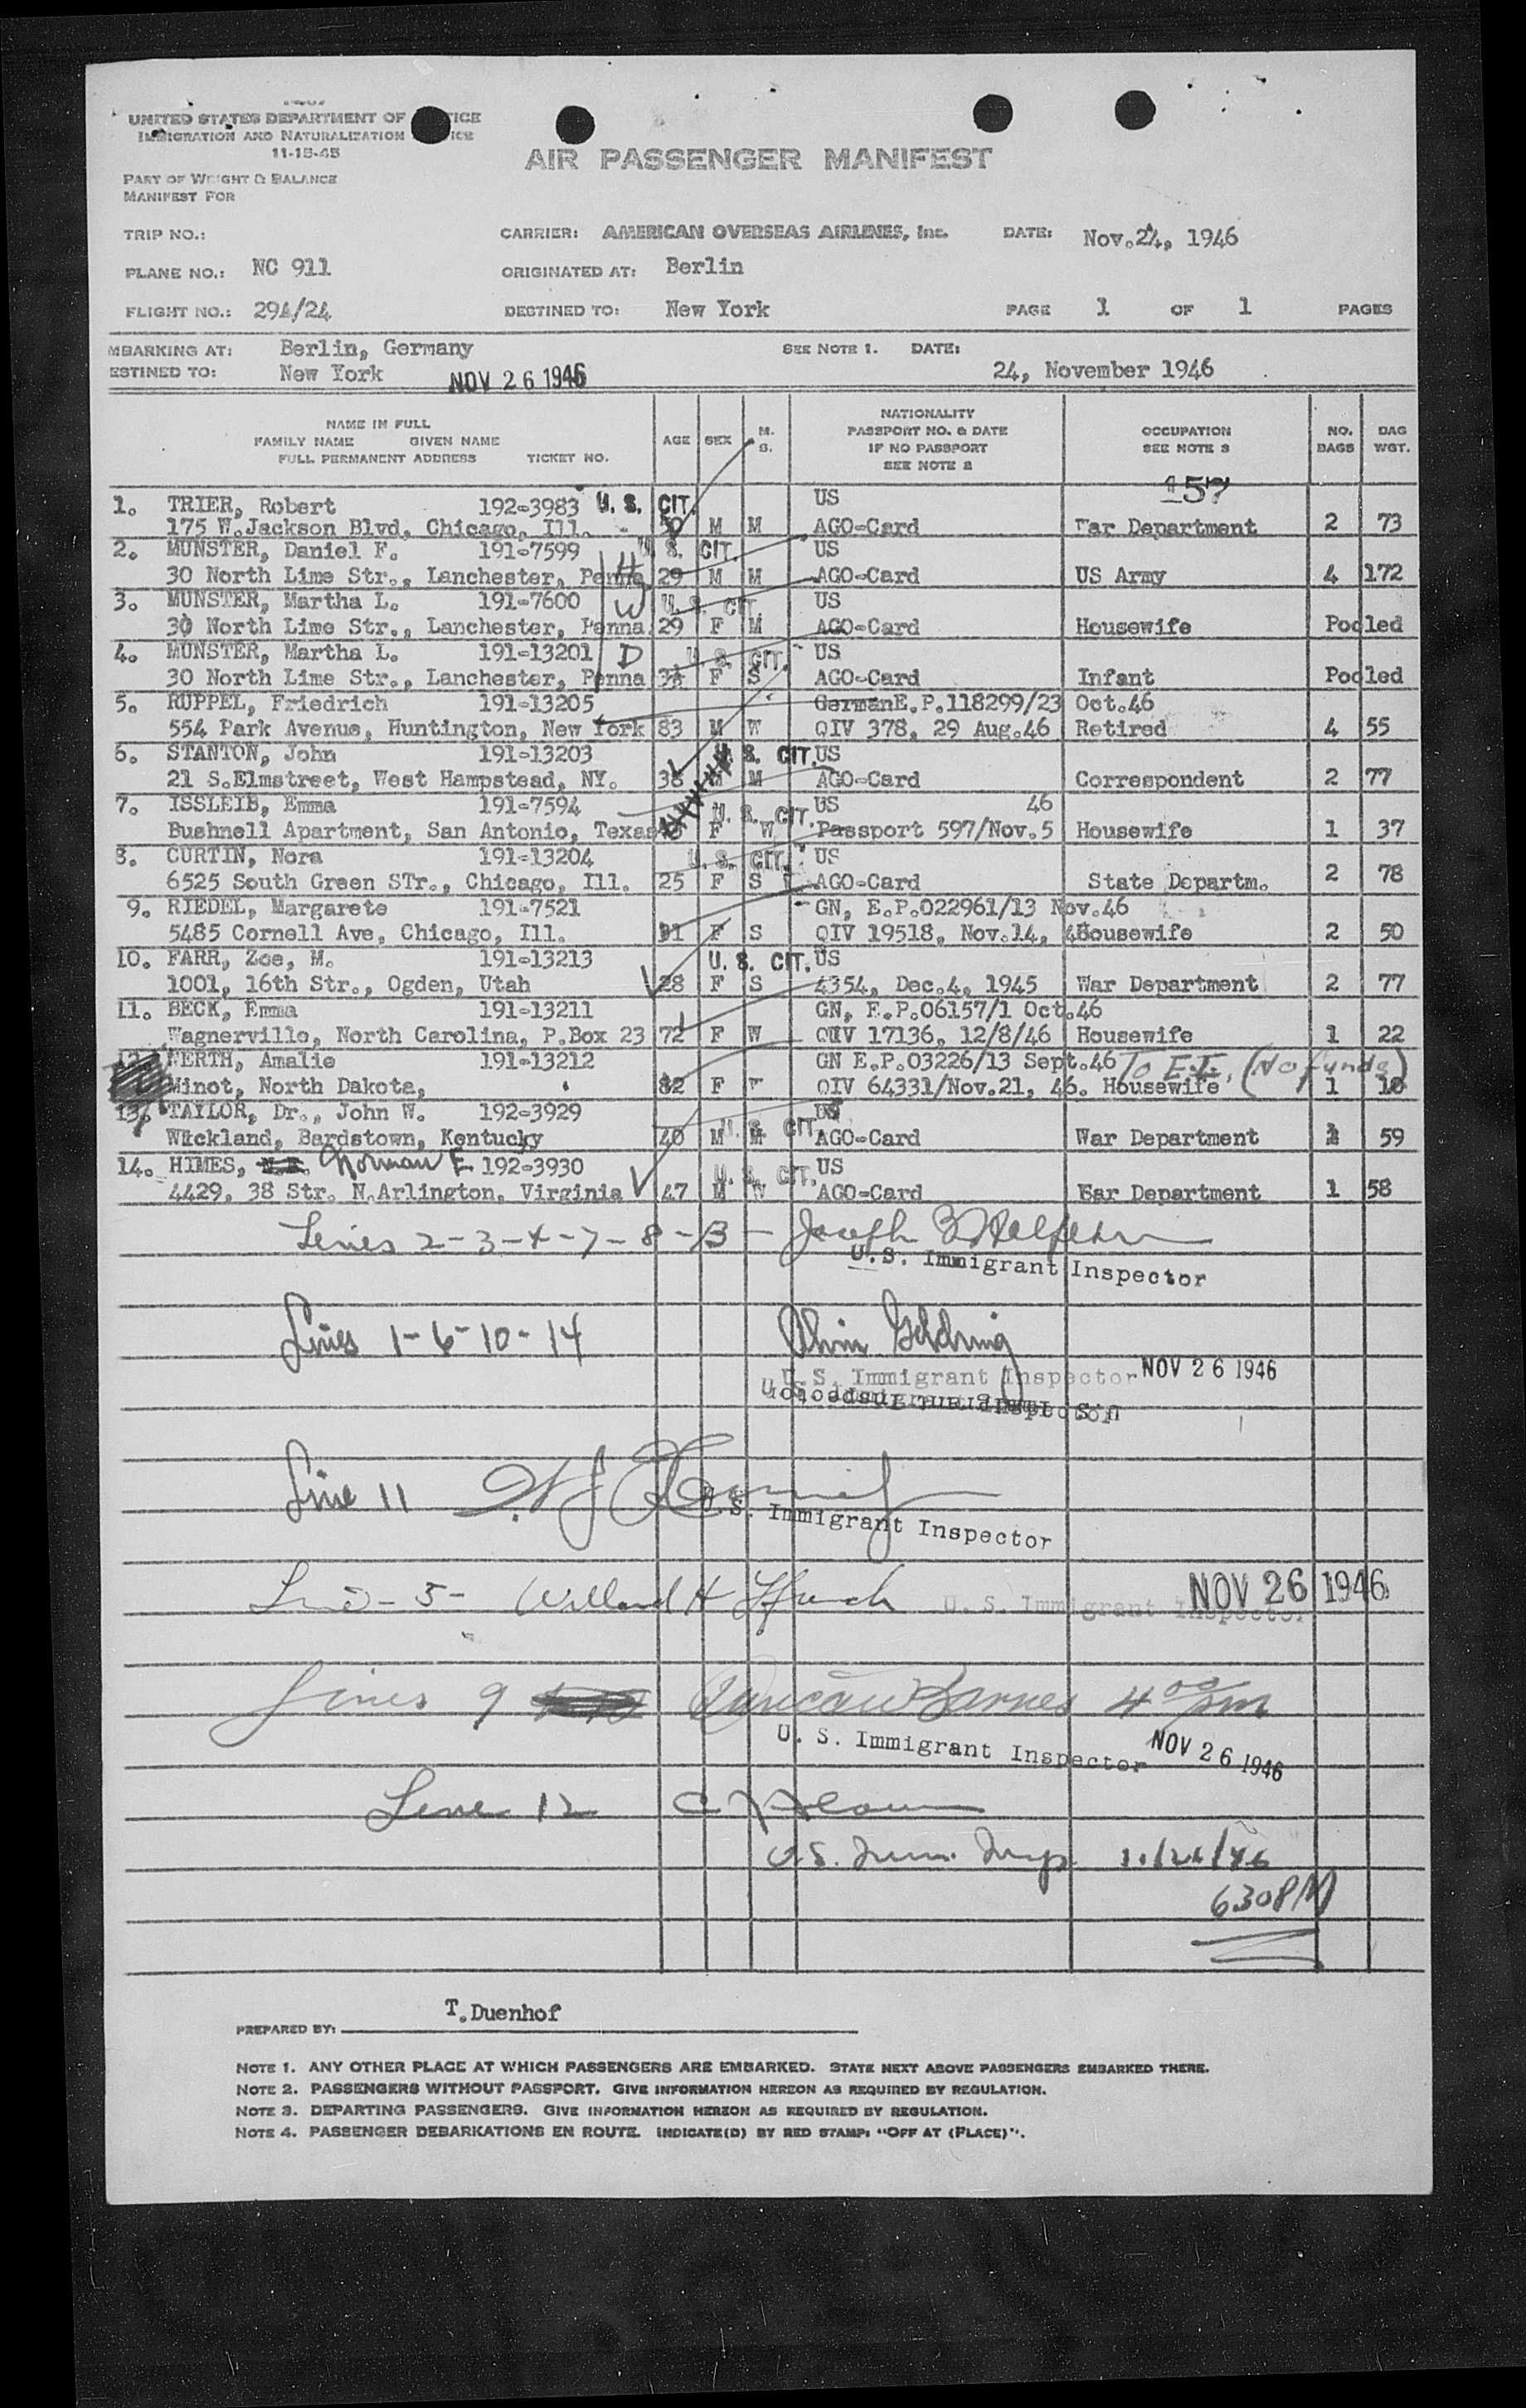 UNITED STATES DEPARTMENT OF
IMMIGRATION AND NATURALIZATION
11-15-45
AIR PASSENGER MANIFEST
PART OF WEIGHT & BALANCE
MANIFEST FOR
TRIP NO.: CARRIER: AMERICAN OVERSEAS AIRLINES, Inc. DATE: Nov.24, 1946
PLANE NO.: NC 911 ORIGINATED AT: Berlin
FLIGHT NO.: 294/24 DESTINED TO: New York PAGE 1 OF 1 PAGES
MBARKING AT: Berlin, Germany SEE NOTE 1. DATE:
ESTINED TO: New York NOV 26 1946 24, November 1946
NAME IN FULL
FAMILY NAME GIVEN NAME
FULL PERMANENT ADDRESS TICKET NO.
AGE SEX M. S.
NATIONALITY
PASSPORT NO. & DATE
IF NO PASSPORT
SEE NOTE 2
OCCUPATION
SEE NOTE 3
NO. BAGS
BAG WGT.
157
1. TRIER, Robert 192-3983 U. S. CIT. US
175 W.Jackson Blvd, Chicago, Ill. 50 M M AGO-Card War Department 2 73
2. MUNSTER, Daniel F. 191-7599 H U. S. CIT. US
30 North Lime Str., Lanchester, Penna 29 M M AGO-Card US Army 4 172
3. MUNSTER, Martha L. 191-7600 W U. S. CIT. US
30 North Lime Str., Lanchester, Penna. 29 F M AGO-Card Housewife Pooled
4. MUNSTER, Martha L. 191-13201 D U. S. CIT. US
30 North Lime Str., Lanchester, Penna F S AGO-Card Infant Pooled
5. RUPPEL, Friedrich 191-13205 German E.P.118299/23 Oct.46
554 Park Avenue, Huntington, New York 83 M W QIV 378, 29 Aug.46 Retired 4 55
6. STANTON, John 191-13203 U. S. CIT. US
21 S.Elmstreet, West Hampstead, NY. 38 M M AGO-Card Correspondent 2 77
7. ISSLEIB, Emma 191-7594 U. S. CIT. US 46
Bushnell Apartment, San Antonio, Texas F W Passport 597/Nov.5 Housewife 1 37
8. CURTIN, Nora 191-13204 U. S. CIT. US
6525 South Green STr., Chicago, Ill. 25 F S AGO-Card State Departm. 2 78
9. RIEDEL, Margarete 191-7521 GN, E.P.022961/13 Nov.46
5485 Cornell Ave, Chicago, Ill. 31 F S QIV 19518, Nov.14, 46 Housewife 2 50
10. FARR, Zoe, M. 191-13213 U. S. CIT. US
1001, 16th Str., Ogden, Utah 28 F S 4354, Dec.4, 1945 War Department 2 77
11. BECK, Emma 191-13211 GN, E.P.06157/1 Oct.46
Wagnerville, North Carolina, P.Box 23 72 F W QIV 17136, 12/8/46 Housewife 1 22
12. NERTH, Amalie 191-13212 GN E.P.03226/13 Sept.46 To E.I. (No funds)
Minot, North Dakota, 82 F QIV 64331/Nov.21, 46. Housewife 1 18
13. TAYLOR, Dr., John W. 192-3929 US
Wickland, Bardstown, Kentucky 40 M M U. S. CIT. AGO-Card War Department 59
14. HIMES, Norman E. 192-3930 US
4429, 38 Str. N.Arlington, Virginia 47 M W U. S. CIT. AGO-Card Ear Department 1 58
Lines 2-3-4-7-8-13- Joseph
U.S. Immigrant Inspector
Lines 1-6-10-14
U.S. Immigrant Inspector NOV 26 1946
Line 11
U.S. Immigrant Inspector
Line-5- Willard H U. S. Immigrant Inspector NOV 26 1946
Lines 9 Duncan W Barnes 4 00 pm
U. S. Immigrant Inspector NOV 26 1946
Line 12
U.S. Imm. Insp. 11/26/46
630PM
T.Duenhof
PREPARED BY:
NOTE 1. ANY OTHER PLACE AT WHICH PASSENGERS ARE EMBARKED. STATE NEXT ABOVE PASSENGERS EMBARKED THERE.
NOTE 2. PASSENGERS WITHOUT PASSPORT. GIVE INFORMATION HEREON AS REQUIRED BY REGULATION.
NOTE 3. DEPARTING PASSENGERS. GIVE INFORMATION HEREON AS REQUIRED BY REGULATION.
NOTE 4. PASSENGER DEBARKATIONS EN ROUTE. INDICATE(D) BY RED STAMP: "OFF AT (PLACE)".